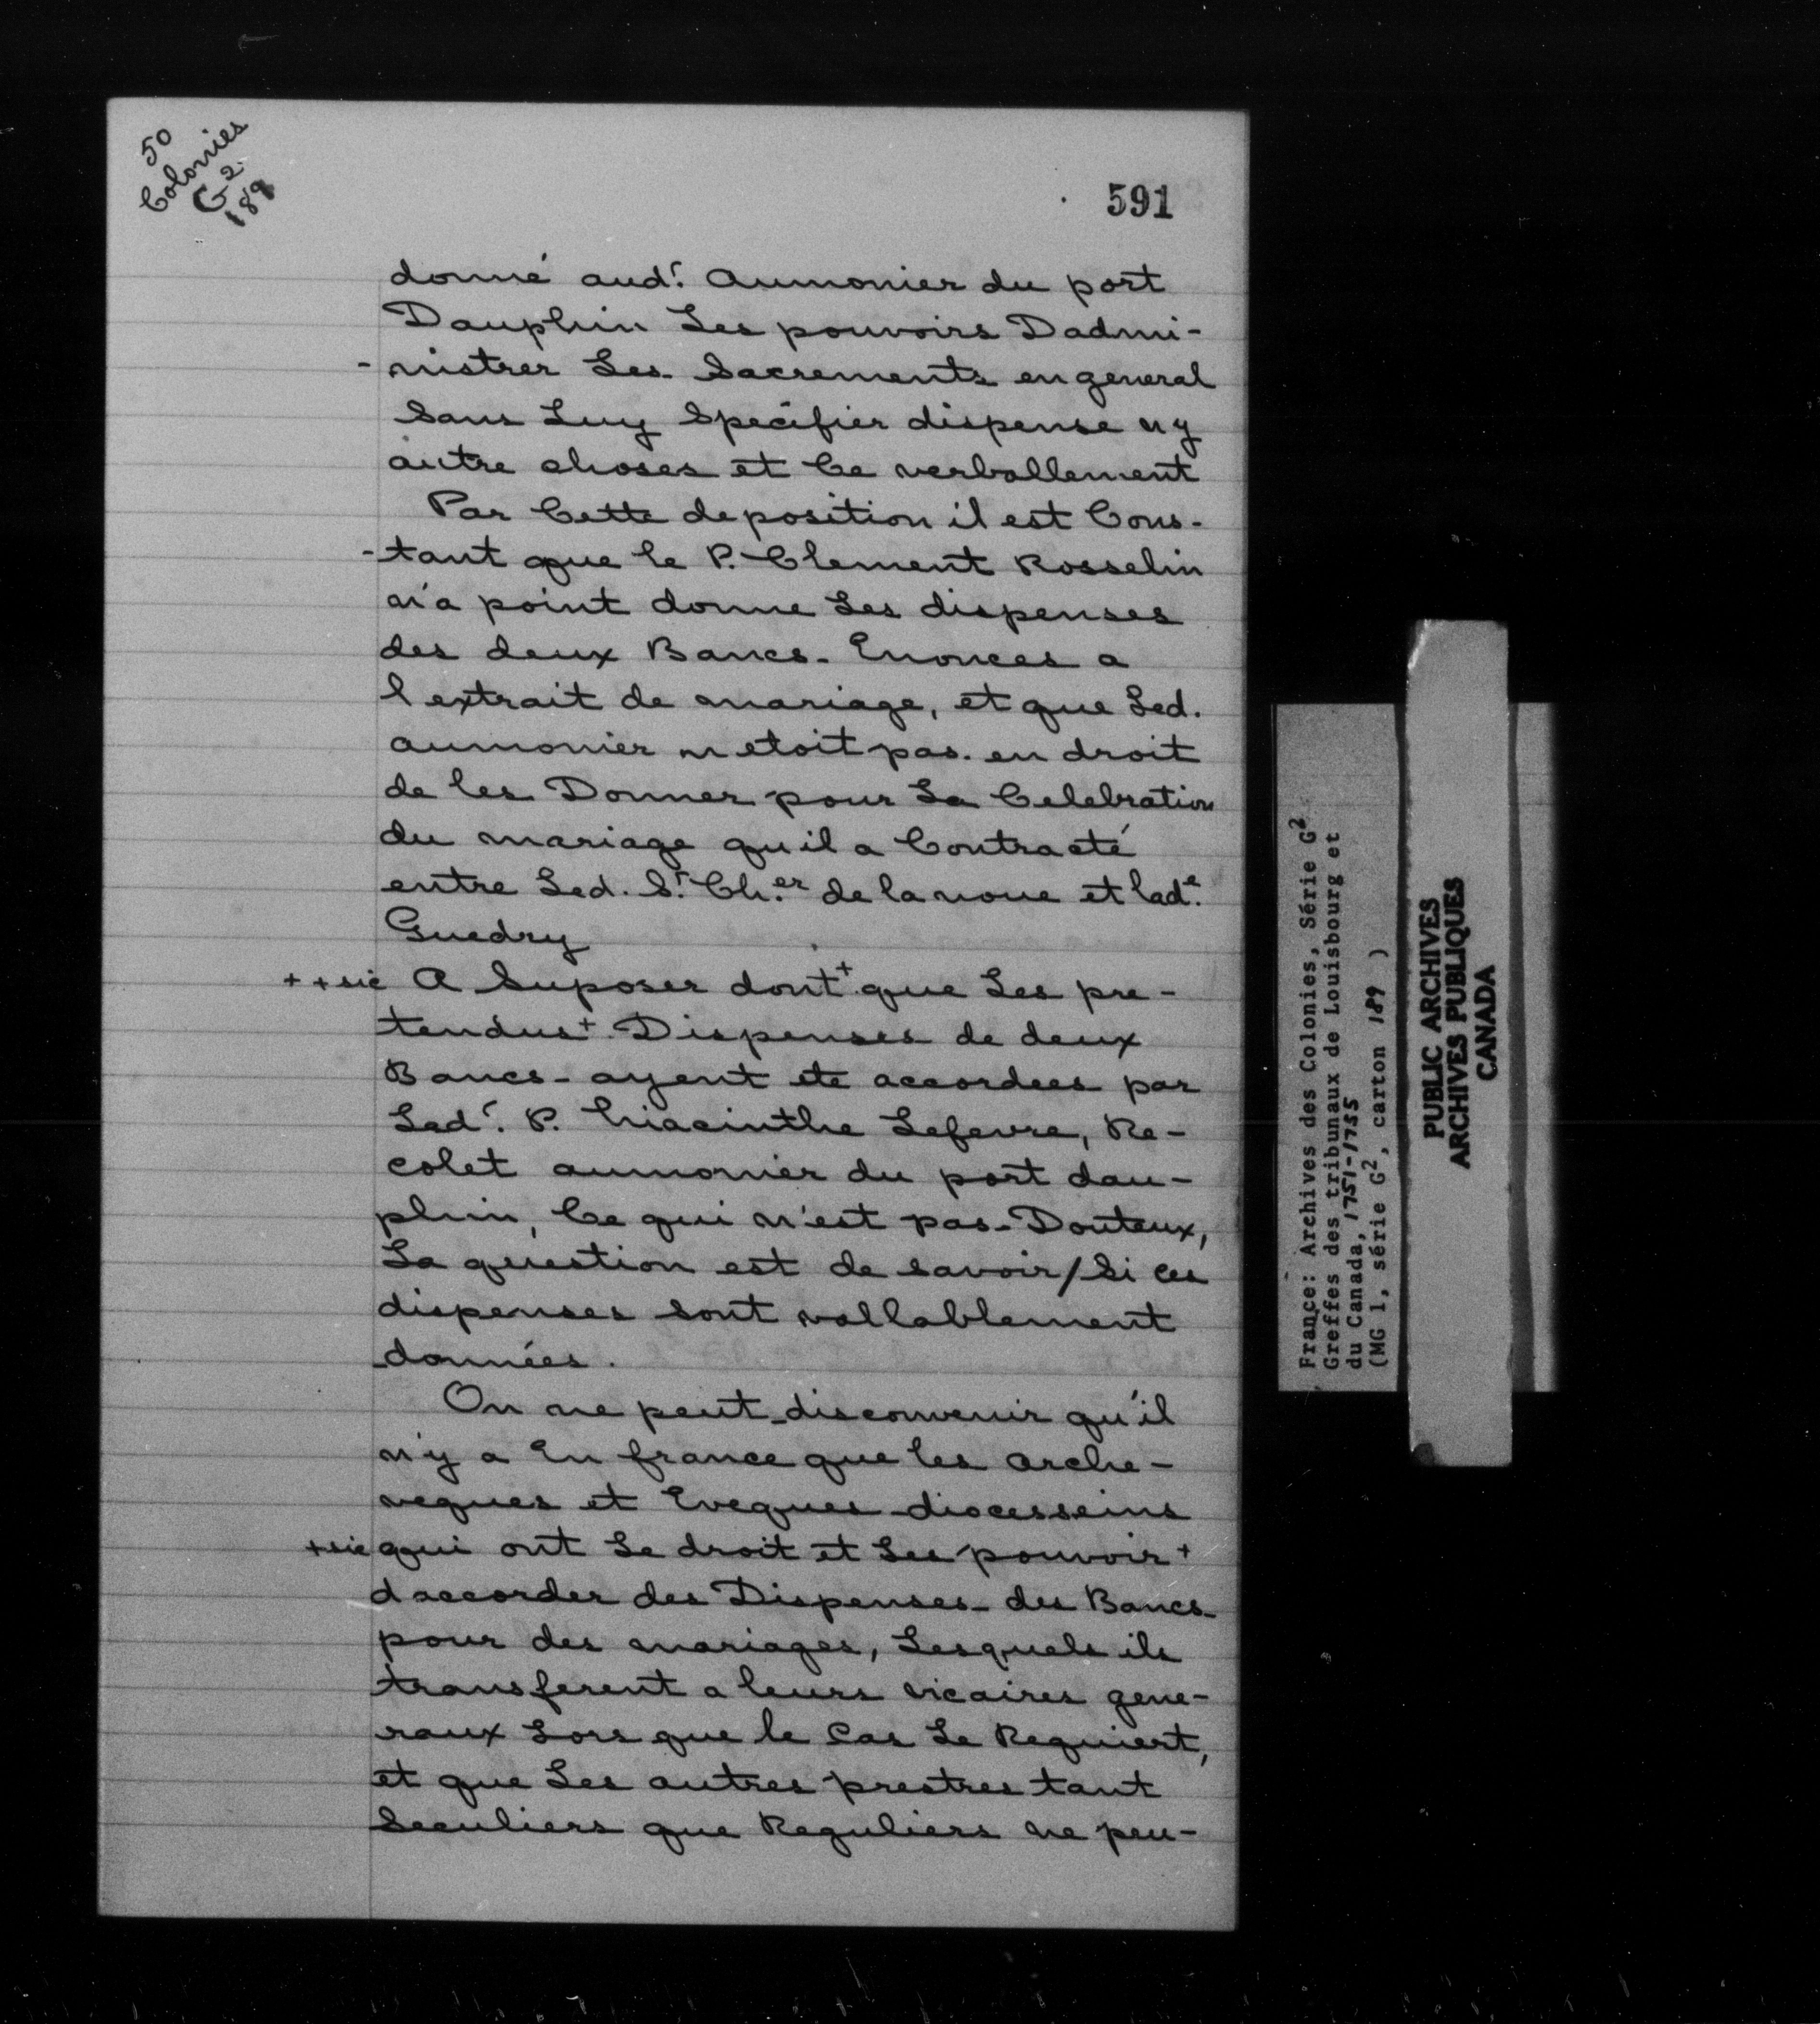 50
Colonies
G2.
189
591
donné aud.t Aumonier du port
Dauphin Les pouvoirs Dadmi-
-nistrer Les Sacrements en general
Sans Luy Specifier dispense ny
autre choses et Ce verballement
Par Cette deposition il est Cons-
-tant que le P. Clement Rosselin
n'a point donne Les dispenses
des deux Bancs. Enonces a
l extrait de mariage, et que Led.
aumonier n etoit pas. en droit
de les Donner pour La Celebration
du mariage qu il a Contracté
entre Led. S.r Ch.er de la noue et lad.e
Guedry
+ + sic A Suposer dont+ que Les pre-
tendus+ Dispenses de deux
Bancs - ayent ete accordees par
Led.t P. hiacinthe Lefevre, Re-
colet aumonier du port dau-
phin, Ce qui n'est pas. Douteux,
La question est de savoir/Si ces
dispenses sont vallablement
données.
On ne peut disconvenir qu'il
n'y a En france que les arche-
veques et Eveques diocesseins
+sic qui ont Le droit et Les pouvoir+
d accorder des Dispenses des Bancs
pour des mariages, Lesquels ils
transferent a leurs vicaires gene-
raux Lors que le Cas Le Requiert,
et que Les autres prestres tant
Seculiers que Reguliers ne peu-
France: Archives des Colonies, Série G2
Greffes des tribunaux de Louisbourg et
du Canada, 1751-1755
(MG 1, série G2, carton 189 )
PUBLIC ARCHIVES
ARCHIVES PUBLIQUES
CANADA